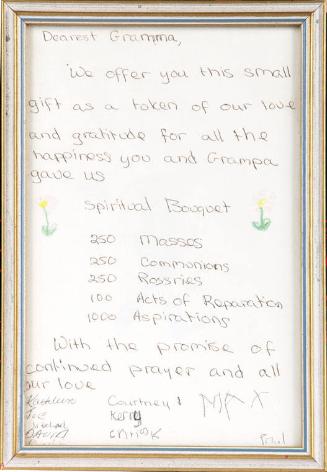 Dearest Gramma,
We offer you this small
gift as a token of our love
and gratitude for all the
happiness you and Grampa
gave us
Spiritual Bouquet
250 Masses
250 Communions
250 Rosries
100 Acts of Reparation
1000 Aspirations
With the promise of
continued prayer and all
our love
Kathleen Courtney
Joe Kerry MAX
David
Paul